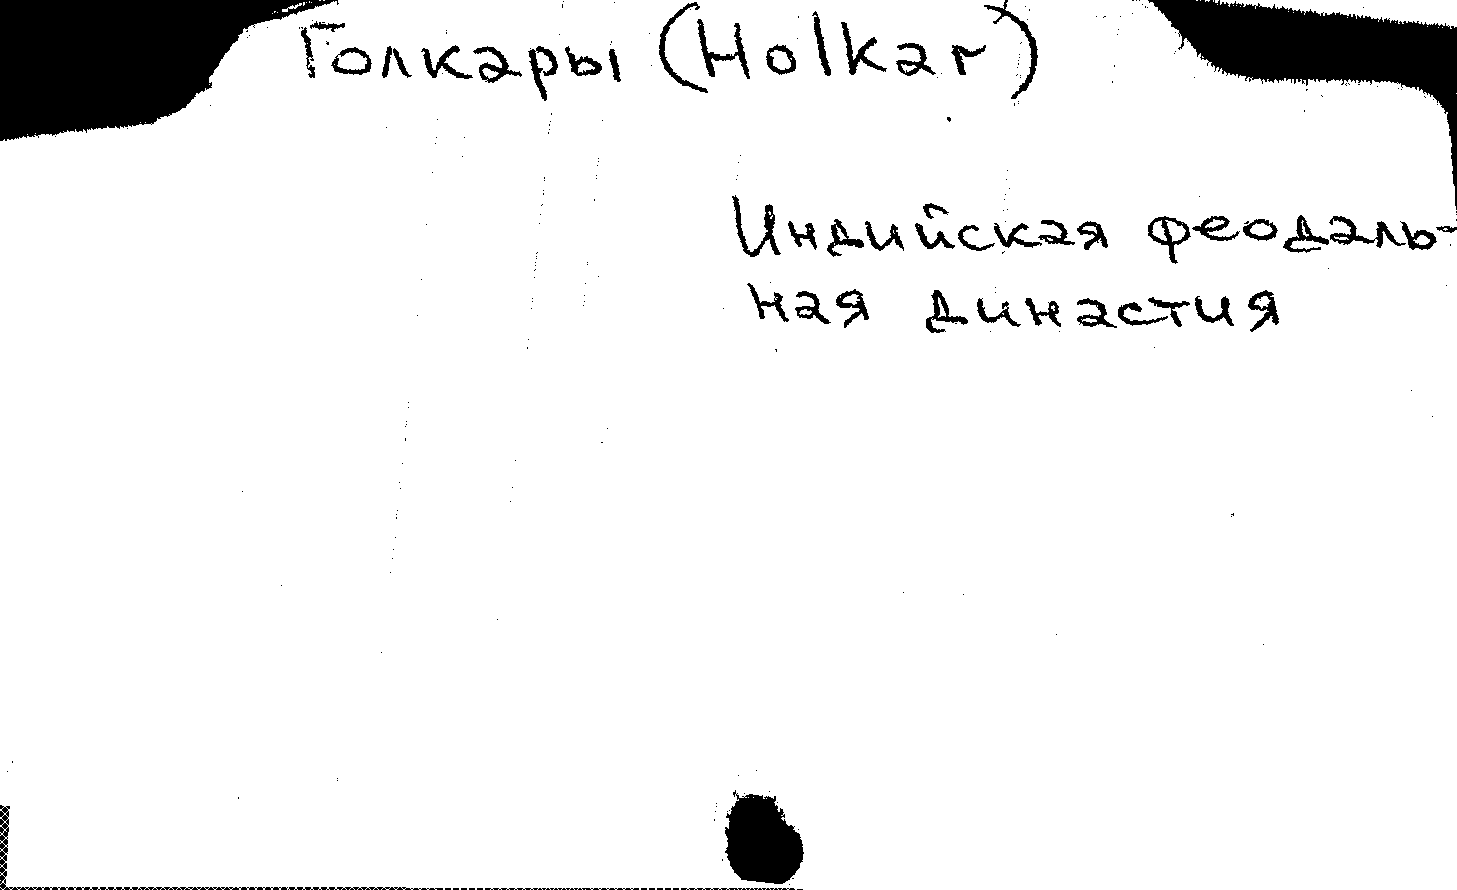 Голкары (Holkar)
Индийская феодаль-
ная династия